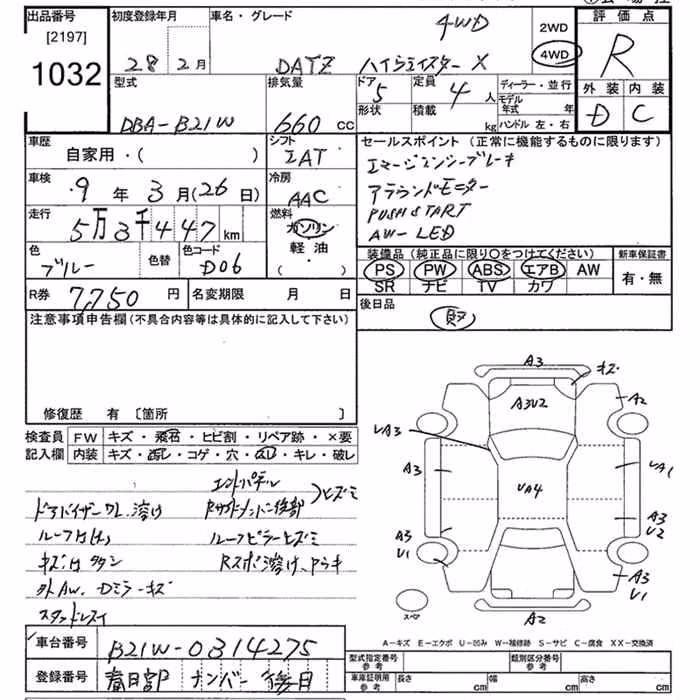 出品番号
[2197]
1032
初度登録年月
28 年 2月
車名・グレード
4WD
DAYZ ハイウェイスター X
2WD
4WD
評価点
R
外装 内装
D C
型式
DBA-B21W
排気量
660 cc
ドア
5
定員
4 人
形状
積載
kg
ディーラー・並行
モデル年式 年
ハンドル 左・右
車歴
自家用・( )
シフト
IAT
セールスポイント (正常に機能するものに限ります)
エマージェンシーブレーキ
アラウンドモニター
PUSH START
AW-LED
車検
9 年 3 月(26 日)
冷房
AAC
走行
5万3千447 km
燃料
ガソリン
軽油
( ・ )
色
ブルー
色替
色コード
D06
装備品 (純正品に限り○をつけてください)
PS PW ABS エアB AW
SR ナビ TV カワ
新車保証書
有・無
R券
7,750 円
名変期限 月 日
後日品
注意事項申告欄(不具合内容等は具体的に記入して下さい)
修復歴 有 〔箇所 〕
検査員
記入欄
FW キズ・飛石・ヒビ割・リペア跡・×要
内装 キズ・コゲ・穴・キレ・破レ
ドアバイザーワレ、溶け
外AW、Dミラーキズ
スタッドレス
A3
キズ
A3U2
A2
UA3
A3
UA4
UA1
A3
U2
A3
U1
A3
U1
A2
スペア
A-キズ E-エクボ U-凹み W-補修跡 S-サビ C-腐食 XX-交換済
車台番号
B21W-0314275
登録番号
春日部 ナンバー後日
型式指定番号
参考
類別区分番号
参考
車庫証明用
参考
長さ cm
幅 cm
高さ cm